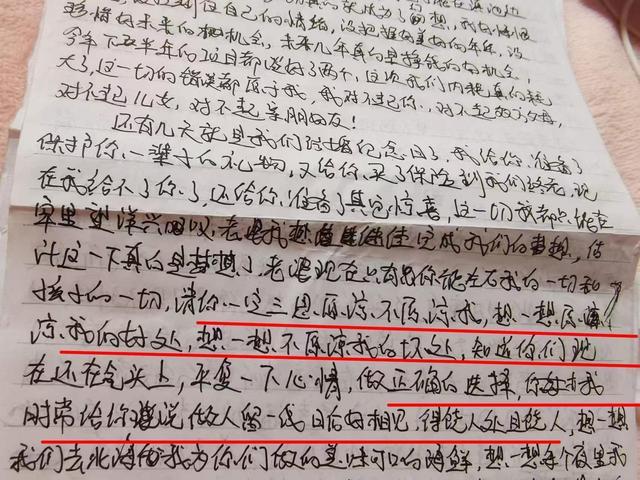 自己的情绪,没把握好美好的年华,没
珍惜好未来的机会,未来几年真的是挣钱的好机会,
今年下半年的项目都谈好了两个,这次我们内耗真的耗
大了,这一切的错误都归于我,我对不起你,对不起父母,
对不起儿女,对不起亲朋好友!
还有几天就是我们结婚纪念日了,我给你准备了
保护你一辈子的礼物,又给你买了保险到我们终老,现
在我给不了你了,还给你准备了其它惊喜,这一切我都只能在
家里到深兴叹,老婆我想继续完成我们的梦想,估
计这一下真的是梦想了,老婆现在只有你能左右我的一切和
孩子的一切,请你一定三思原谅不原谅我,想一想原
谅我的好处,想一想不原谅我的坏处,知道你们现
在还在气头上,平复一下心情,做正确的选择,你对我
时常给你说做人留一线日后好相见,得饶人处且饶人,想一想
我们去北海我为你们做的美味可口的海鲜,想一想每个夜里我